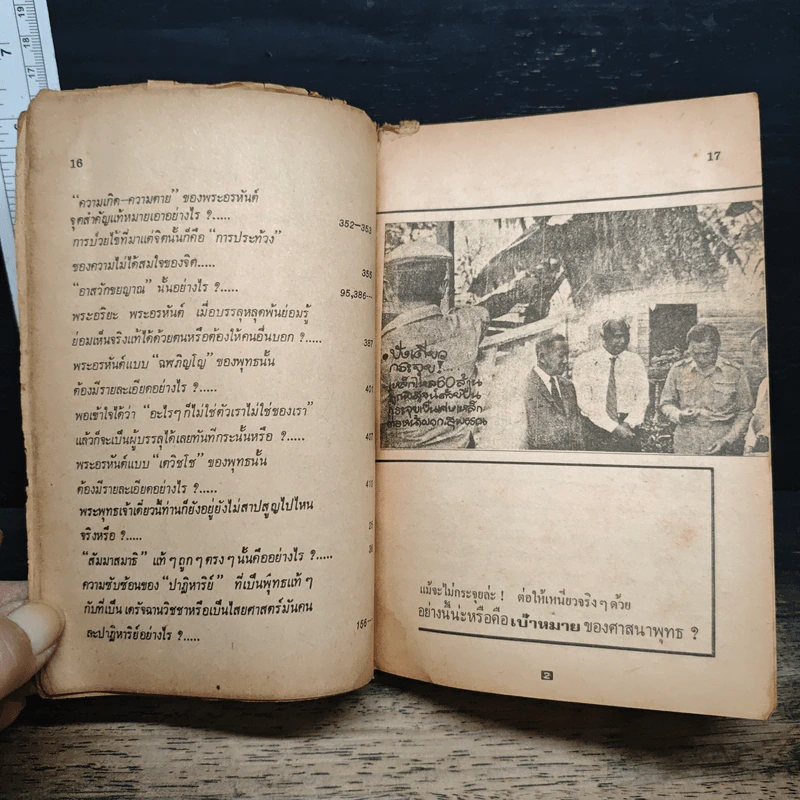 16
“ความเกิด–ความตาย” ของพระอรหันต์
จุดสำคัญแท้หมายเอาอย่างไร ?..... 352–353
การป่วยไข้ที่มาแต่จิตนั้นก็คือ “การประท้วง”
ของความไม่ได้สมใจของจิต..... 355
“อาสวักขยญาณ” นั้นอย่างไร ?..... 95,386...
พระอริยะ พระอรหันต์ เมื่อบรรลุหลุดพ้นย่อมรู้
ย่อมเห็นจริงแท้ได้ด้วยตนหรือต้องให้คนอื่นบอก ?..... 387
พระอรหันต์แบบ “ฉฬภิญโญ” ของพุทธนั้น
ต้องมีรายละเอียดอย่างไร ?..... 401
พอเข้าใจได้ว่า “อะไรๆ ก็ไม่ใช่ตัวเราไม่ใช่ของเรา”
แล้วก็จะเป็นผู้บรรลุได้เลยทันทีกระนั้นหรือ ?..... 407
พระอรหันต์แบบ “เตวิชโช” ของพุทธนั้น
ต้องมีรายละเอียดอย่างไร ?..... 410
พระพุทธเจ้าเดี๋ยวนี้ท่านก็ยังอยู่ยังไม่สาปสูญไปไหน
จริงหรือ ?..... 25
“สัมมาสมาธิ” แท้ ๆ ถูก ๆ ตรง ๆ นั้นคืออย่างไร ?..... 36
ความซับซ้อนของ “ปาฏิหาริย์” ที่เป็นพุทธแท้ ๆ
กับที่เป็น เดรัจฉานวิชชาหรือเป็นไสยศาสตร์มันคน
ละปาฏิหาริย์อย่างไร ?..... 156—
17
ปังเดียว
กระจุย!...
เหล็กไหล 60 ล้าน
แม้จะไม่กระจุยล่ะ ! ต่อให้เหนียวจริง ๆ ด้วย
อย่างนี้น่ะหรือคือเป้าหมาย ของศาสนาพุทธ ?
2